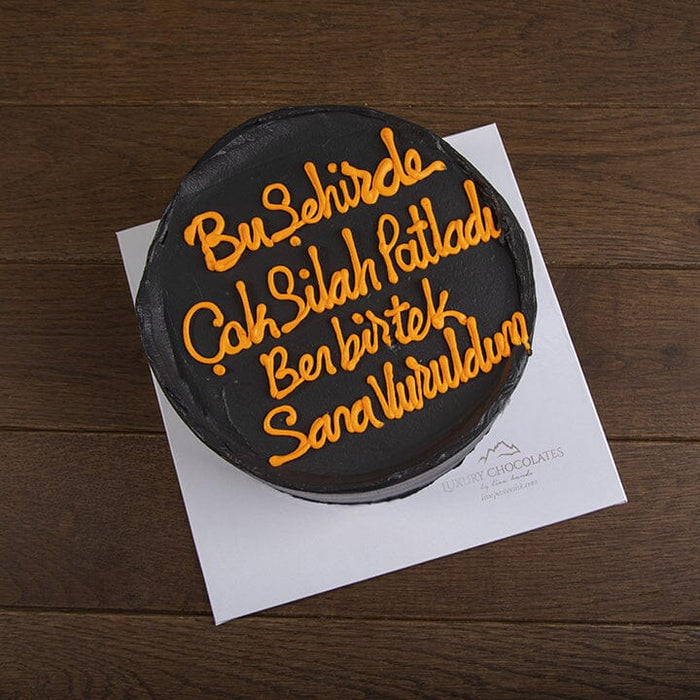 Bu Şehirde
Çok Silah Patladı
Ben bir tek
Sana Vuruldum
LUXURY CHOCOLATES